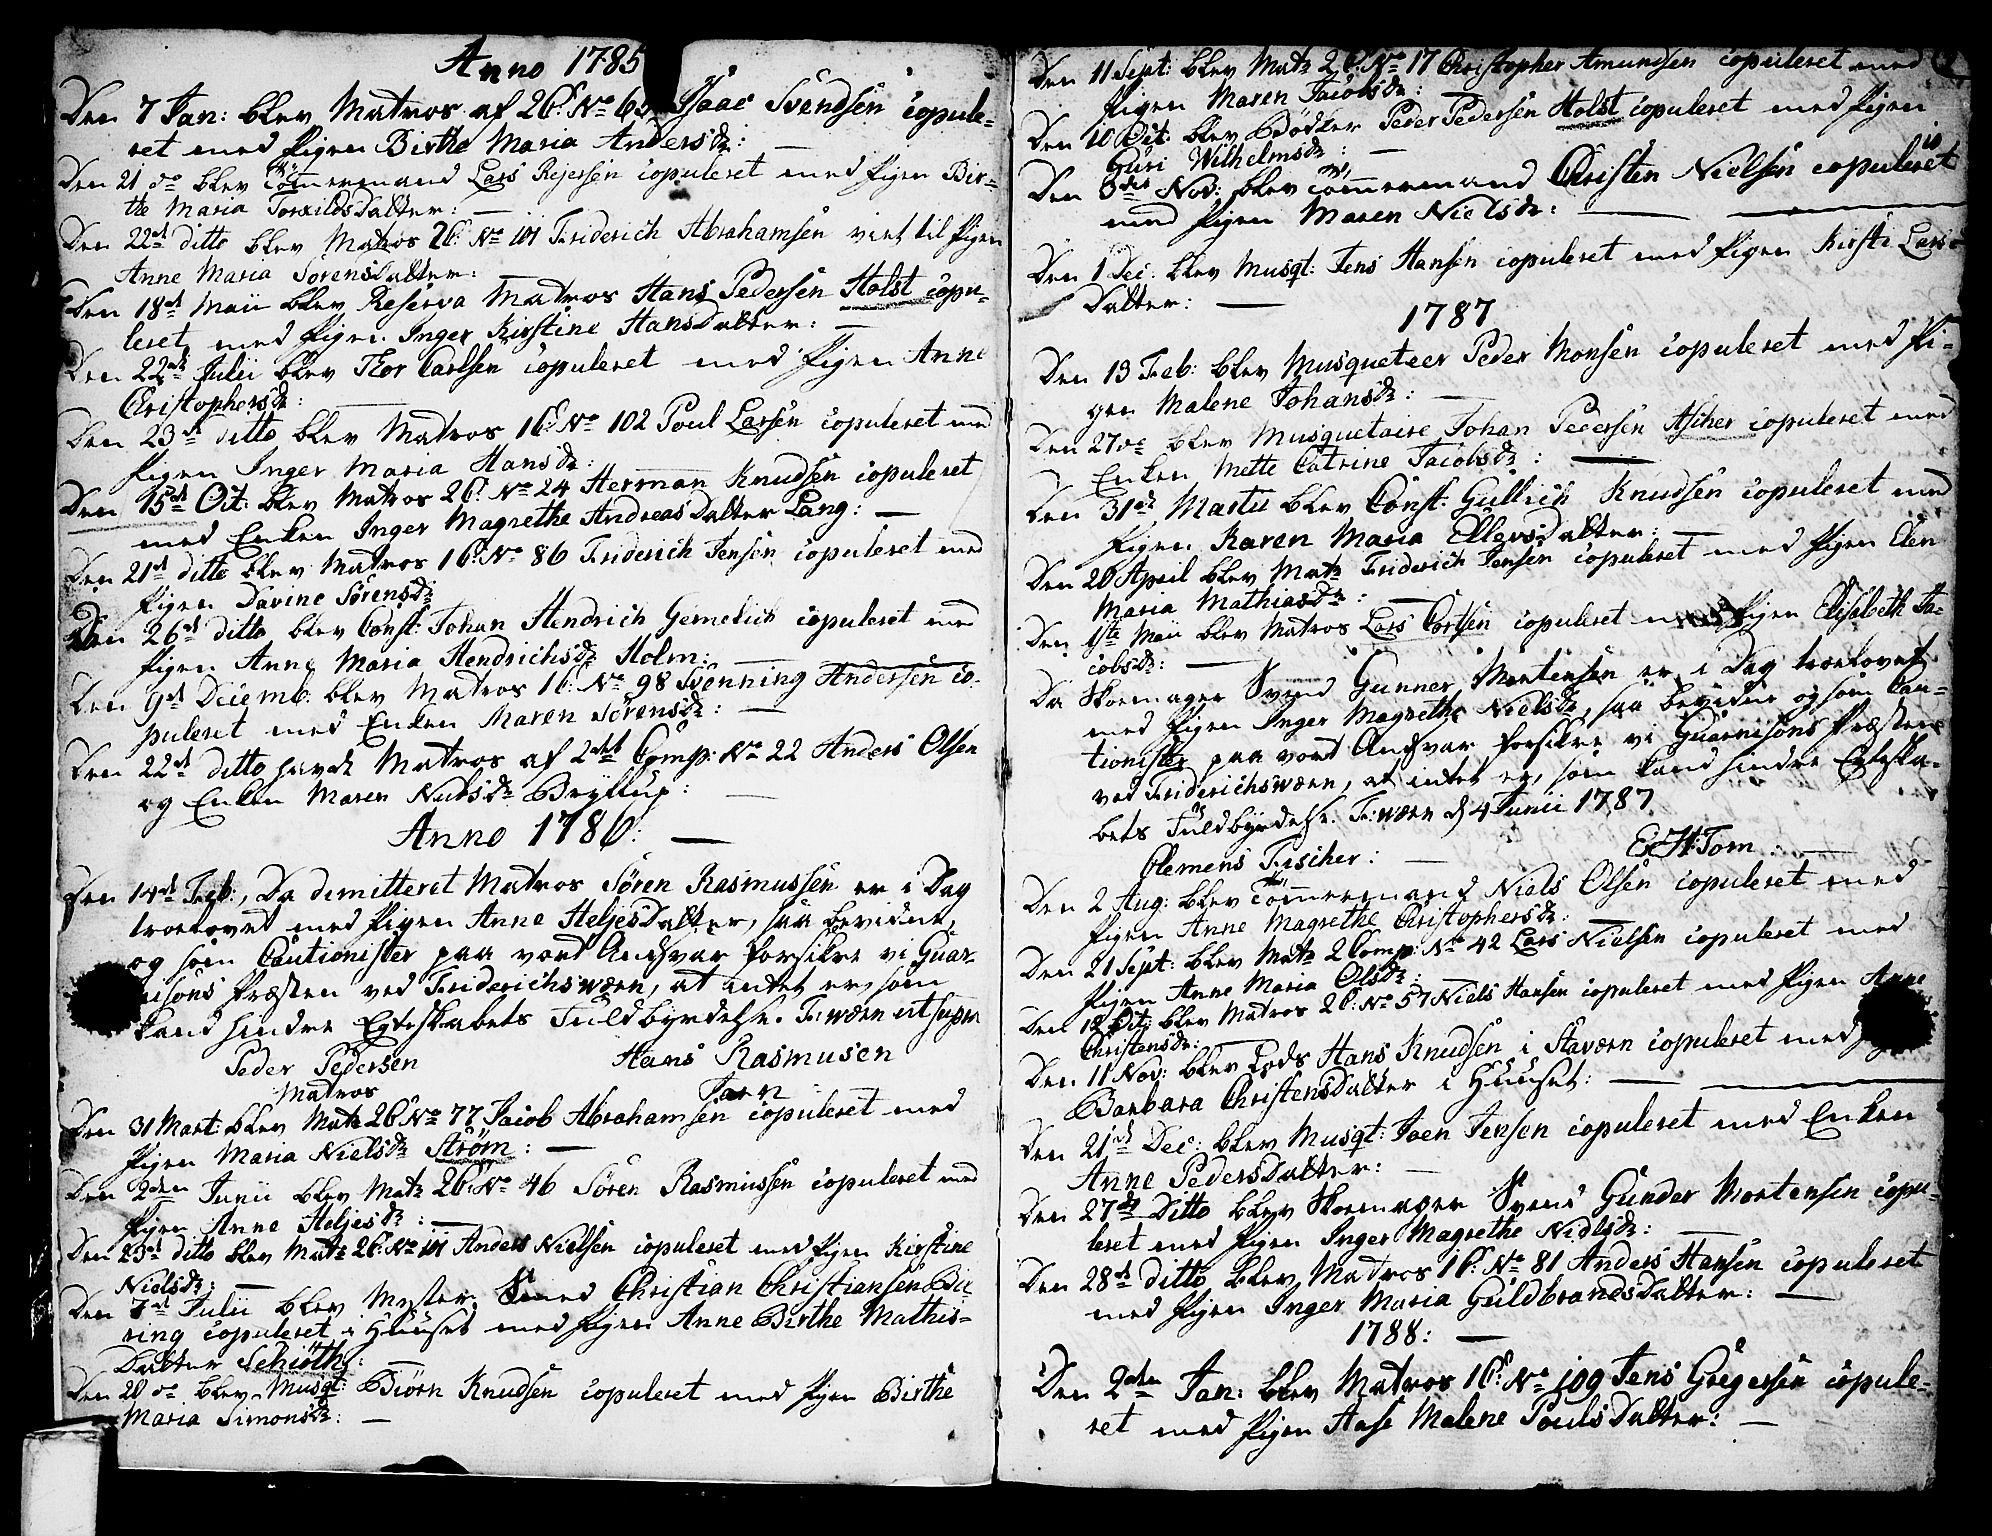 Anno 1785
Den 7 Jan: blev Matros af 2C. No 65 Isaac Svendsen copule-
ret med Pigen Birthe Maria Andersdr: —
Den 21 do blev Tømmermand Lars Rejersen copuleret med Pigen Bir-
the Maria TorkildsDatter: —
Den 22de ditto blev Matros 2C. No 101 Friderich Abrahamsen viet til Pigen
Anne Maria SørensDatter:
Den 18de Maii blev Reserva Matros Hans Pedersen Holst copu-
leret med Pigen Inger Kirstine HansDatter: —
Den 22de Julii blev Thor Carlsen copuleret med Pigen Anne
Christophersdr: —
Den 23de ditto blev Matros 1C. No 102 Poul Larsen copuleret med
Pigen Inger Maria Hansdr:
Den 15de Oct: blev Matros 2C. No 24 Herman Knudsen copuleret
med Enken Inger Magrethe AndreasDatter Lang: —
Den 21de ditto blev Matros 1C. No 86 Friderich Jensen copuleret med
Pigen Davine Sørensdr
Den 26de ditto blev Const: Johan Hendrich Gemelich copuleret med
Pigen Anne Maria Hendrichsdr Holm: —
Den 9de Decemb: blev Matros 1C. No 98 Svenning Andersen co-
puleret med Enken Maren Sørensdr: —
Den 22de ditto havde Matros af 2det Comp: No 22 Anders Olsen
og Enken Maren Nielsdr Bryllup: —
Anno 1786: —
Den 14de Feb:, Da dimitteret Matros Søren Rasmussen er i Dag
trolovet med Pigen Anne HeljesDatter, saa bevidne,
og som Cautionister paa vort Andsvar forsikre vi Guar-
nisons Præsten ved Friderichswærn, at intet er, som
kand hindre Egteskabets Fuldbyrdelse. Fr:wærn ut supra
Peder Pedersen Hans Rasmusen
Matros
Den 31 Mart: blev Matr 2C No 77 Jacob Abrahamsen copuleret med
Pigen Maria Nielsdr Strøm: —
Den 2den Junii blev Matr 2C. No 46 Søren Rasmussen copuleret med
Pigen Anne Heljesdr: —
Den 23de ditto blev Matr 2C. No 101 Anders Nielsen copuleret med Pigen Kirstine
Nielsdr: —
Den 7de Julii blev Mester Smed Christian Christiansen Bie
ring copuleret i Huuset med Pigen Anne Birthe Mathis-
Datter Schiøth:
Den 20 do blev Musqt: Biørn Knudsen copuleret med Pigen Birthe
Maria Simonsdr: —
Den 11 Sept: blev Matr 2C. No 17 Christopher Amundsen copuleret med
Pigen Maren Jacobsdr:
Den 10 Oct: blev Bødker Peder Pedersen Holst copuleret med Pigen
Guri Wilhelmsdr: —
Den 3die Nov: blev Tømmermand Christen Nielsen copuleret
med Pigen Maren Nielsdr: —
Den 1 Dec: blev Musqt: Jens Hansen copuleret med Pigen Kirsti Lars-
Datter: —
1787
Den 13 Feb: blev Musqueteer Peder Monsen copuleret med Pi-
gen Malene Johansdr: —
Den 27 do blev Musquetaire Johan Pedersen Ascher copuleret med
Enken Mette Catrine Jacobsdr: —
Den 31de Martii blev Const: Gullich Knudsen copuleret med
Pigen Karen Maria EllevsDatter: —
Den 20 April blev Matr Friderich Jensen copuleret med Pigen Elen
Maria Mathiasdr: —
Den 1ste Maii blev Matros Lars Cortsen copuleret med Pigen Elisabeth Ja-
cobsdr: —
Da Skoemager Svend Gunner Mortensen er i Dag trolovet
med Pigen Inger Magrethe Nielsdr, saa bevidne og som Cau-
tionister paa vort Andsvar forsikre vi Guarnisons Præsten
ved Friderichswærn, at intet er, som kand hindre Egteska-
bets Fuldbyrdelse. Fr:wærn d 4 Junii 1787
Clemens Fischer: — E H Tom: —
Den 2 Aug: blev Tømmermand Niels Olsen copuleret med
Pigen Anne Magrethe Christophersdr:
Den 21 Sept: blev Matr 2 Comp: No 42 Lars Nielsen copuleret med
Pigen Anne Maria Olsdr:
Den 12 Oct: blev Matros 2C. No 57 Niels Hansen copuleret med Pigen Anne
Christensdr: —
Den 11 Nov: blev Lods Hans Knudsen i Staværn copuleret med
Barbara ChristensDatter i Huuset: —
Den 21de Dec: blev Musqt: Joen Jensen copuleret med Enken
Anne PedersDatter: —
Den 27de Ditto blev Skoemager Svend Gunder Mortensen copu-
leret med Pigen Inger Magrethe Nielsdr: —
Den 28de ditto blev Matros 1C. No 81 Anders Hansen copuleret
med Pigen Inger Maria GuldbrandsDatter: —
1788: —
Den 2den Jan: blev Matros 1C. No 109 Jens Gregersen copule-
ret med Pigen Aase Malene PoulsDatter: —